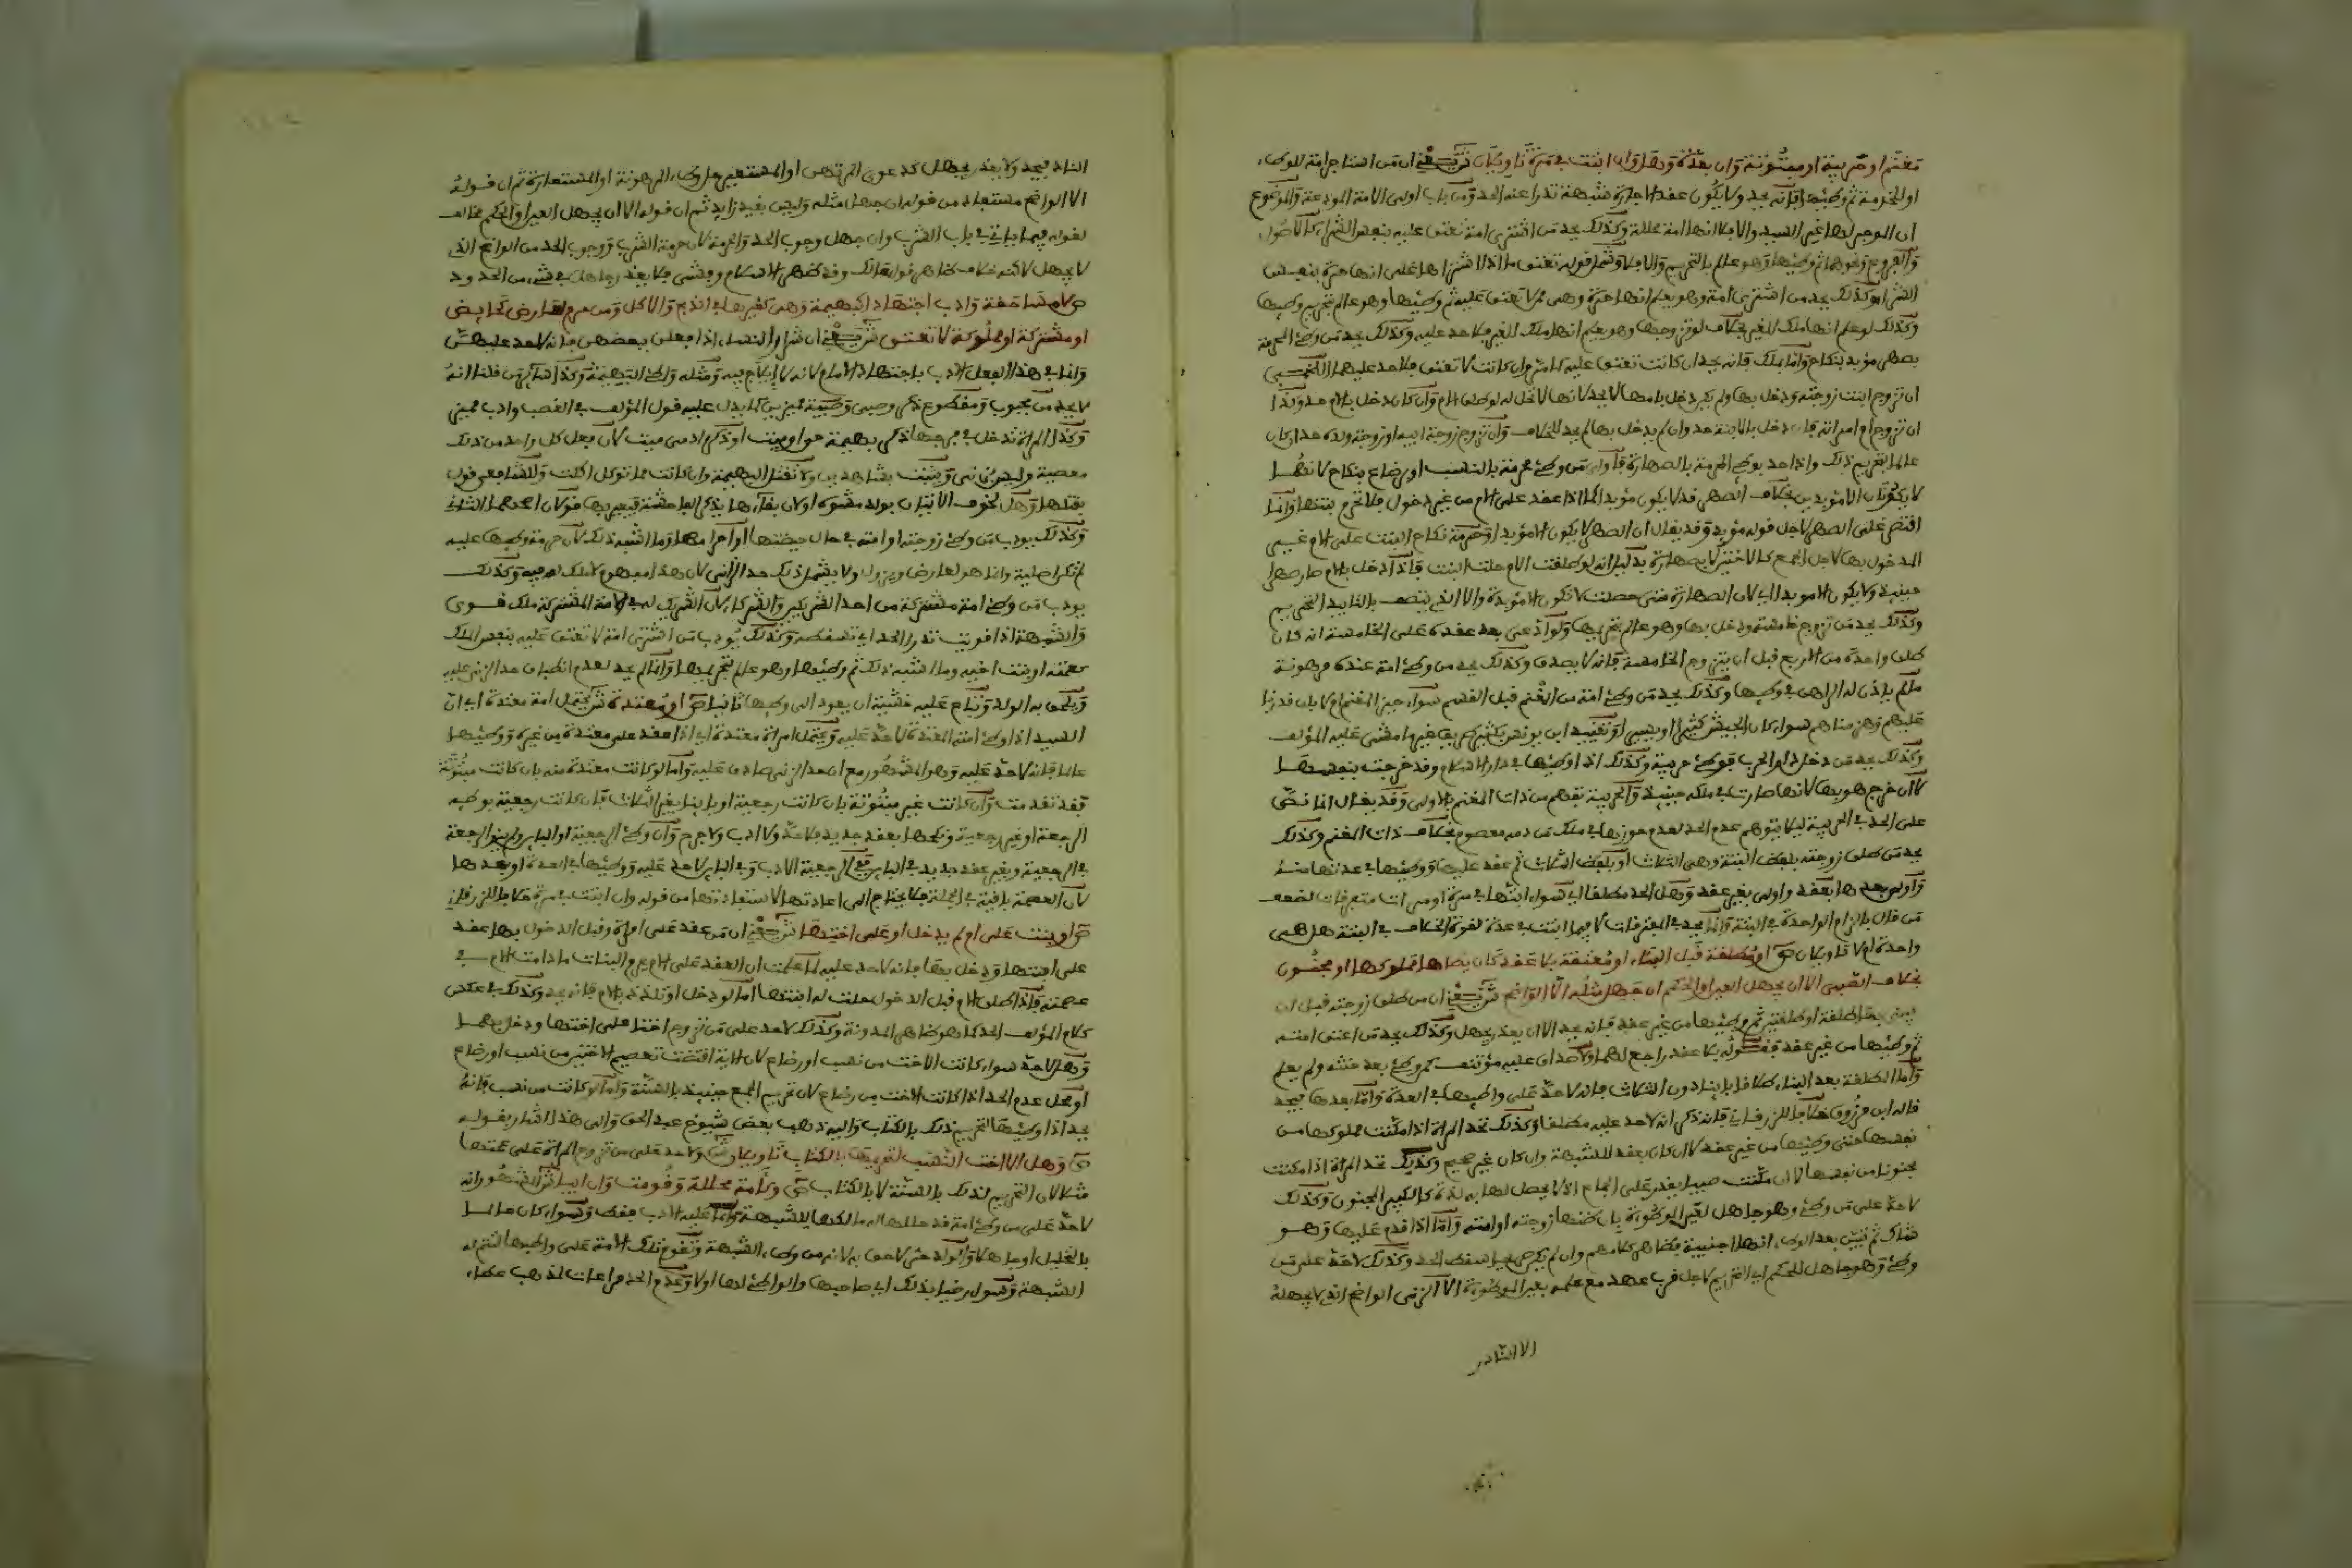 مغنم او حربية او مبتوتة وان بعدة وهل وان ابتت في مرة تاويلان ش يعني ان من استاجر امة للوطء
او للخدمة ثم وطئها فانه يحد ولا يكون عقد الاجارة شبهة تدرا عنه الحد ومن باب اولى الامة المودعة والموضوع
ان المؤجر لها غير السيد والا فلا انها امة محللة وكذلك يحد من اشترى امة تعتق عليه بنفس الشراء كالاصول
والفروع ونحوهما ثم وطئها وهو عالم بالتحريم والا فلا وشمل قوله تعتق ما اذا اشتراها على انها حرة بنفس
الشراء وكذلك يحد من اشترى امة وهو يعلم انها حرة وهي ممن لا تعتق عليه ثم وطئها وهو عالم بتحريم وطئها
وكذلك لو علم انها ملك للغير بخلاف لو تزوجها وهو يعلم انها ملك الغير فلا حد عليه وكذلك يحد من وطئ المحرمة
بصهر مؤبد بنكاح واما بملك فانه يحد ان كانت تعتق عليه كما مر وان كانت لا تعتق فلا حد عليه اللخمي
ان تزوج ابنت زوجته ودخل بها ولم يكن دخل بامها لا يحد لانها لا تحل له لو طلق الام وان كان دخل بالام حد وكذا
ان تزوج ام امراته فان دخل بالابنة حد وان لم يدخل بها لم يحد للخلاف وان تزوج زوجة ابيه او زوجة ولده حد ان كان
عالما بتحريم ذلك واذا حد بوطء المحرمة بالصهارة فاولى من وطئ محرمة بالنسب او رضاع بنكاح لانهما
لا يكونان الا مؤبدين بخلاف الصهر فقد لا يكون مؤبدا كما اذا عقد على الام من غير دخول فلا تحرم بنتها وانما
اقتصر على الصهر لاجل قوله مؤبد وقد يقال ان الصهر لا يكون الا مؤبدا وحرمة نكاح البنت على الام غير
المدخول بها لاجل الجمع كالاختين لا بصهارة بدليل انه لو طلقت الام حلت البنت فاذا دخل بالام صار صهرا
حينئذ ولا يكون الا مؤبدا اي لان الصهارة متى حصلت لا تكون الا مؤبدة والا الذي يتصف بالتابيد التحريم
وكذلك يحد من تزوج خامسة ودخل بها وهو عالم بتحريمها ولو ادعى بعد عقده على الخامسة انه كان
طلق واحدة من الاربع قبل ان يتزوج الخامسة فانه لا يصدق وكذلك يحد من وطئ امة عنده مرهونة
ما لم ياذن له الراهن في وطئها وكذلك يحد من وطئ امة من الغنم قبل القسم سواء حيز المغنم ام لا بان قدرنا
عليهم وهزمناهم سواء كان الجيش كثيرا او يسيرا
وكذلك يحد من دخل دار الحرب فوطئ حربية وكذلك اذا وطئها في دار الاسلام وقد خرجت بنفسها
لا ان خرج هو بها لانها صارت في ملكه حينئذ والحربية تفهم من ذات المغنم بالاولى وقد يقال انما نص
على الحد في الحربية ليلا يتوهم عدم الحد لعدم حوزها في ملك من دمه معصوم بخلاف ذات المغنم وكذلك
يحد من طلق زوجته بلفظ البتة وهي الثلاث او بلفظ الثلاث ثم عقد عليها ووطئها في عدتها منه
واولى بعدها بعقد واولى بغير عقد وهل الحد مطلقا اي سواء ابتها في مرة او مرات متفرقات لضعف
من قال بالزام الواحدة في البتة وانما يحد في المتفرقات لا فيما ابتت في عدة لقوة الخلاف في البتة هل هي
واحدة ام لا تاويلان ص او مطلقة قبل البناء او معتقة بلا عقد كان يطاها مملوكها او مجنون
بخلاف الصبي الا ان يجهل العين او الحكم ان جهل مثله الا الواضح ش يعني ان من طلق زوجته قبل ان
يبني بها طلقة او طلقتين ثم وطئها من غير عقد فانه يحد الا ان يعذر بجهل وكذلك يحد من اعتق امته
ثم وطئها من غير عقد فقوله بلا عقد راجع لهما ولا صداق عليه مؤتنف كمن وطئ بعد حنثه ولم يعلم
واما المطلقة بعد البناء طلاقا باينا دون الثلاث فانه لا حد على واطئها في العدة واما بعدها فيحد
قاله ابن مرزوق خلافا للزرقاني فانه ذكر انه لا حد عليه مطلقا وكذلك تحد المراة اذا مكنت مملوكها من
نفسها حتى وطئها من غير عقد لا ان كان بعقد للشبهة وان كان غير صحيح وكذلك تحد المراة اذا مكنت
مجنونا من نفسها لا ان مكنت صبيا يقدر على الجماع اذ لا يحصل لها به لذة كالكبير المجنون وكذلك
لا حد على من وطئ وهو جاهل لعين الموطوءة بان ظنها زوجته او امته واما اذا قدم عليها وهو
شاك ثم تبين بعد الوطء انها اجنبية فظاهر كلامهم وان لم يكن صريحا سقط الحد وكذلك لا حد على من
وطئ وهو جاهل للحكم اي التحريم لاجل قرب عهد مع علمه بعين الموطوءة الا الزنى الواضح الذي لا يجهله
الا النادر
النادر فيحد ولا يعذر بجهل كدعوى المرتهن او المستعير حل وطء المرهونة او المستعارة ثم ان قوله
الا الواضح مستفاد من قوله ان جهل مثله وليس بقيد زايد ثم ان قوله الا ان يجهل العين او الحكم مخالف
لقوله فيما ياتي في باب الشرب وان جهل وجوب الحد والحرمة لان حرمة الشرب ووجوب الحد من الواضح الذي
لا يجهل لاكنه خلاف ظاهر قول مالك وقد ظهر الاسلام وفشى فلا يعذر جاهل في شيء من الحدود
ص لا مساحقة وادب اجتهادا كبهيمة وهي كغيرها في الذبح والاكل ومن حرم لعارض كحايض
او مشتركة او مملوكة لا تعتق ش يعني ان شرار النساء اذا فعلن ببعضهن فانه لا حد عليهن
وانما في هذا الفعل الادب باجتهاد الامام لانه لا ايلاج فيه ومثله واطئ البهيمة
لا يحد من مجبوب ومقطوع ذكر وصبي وصبية مميزين كما يدل عليه قول المؤلف في الغصب وادب مميز
وكذا المراة تدخل في فرجها ذكر بهيمة حي او ميت او ذكر ادمي ميت لان فعل كل واحد من ذلك
معصية وليس بزنى ويثبت بشاهدين ولا تقتل البهيمة وان كانت مما توكل اكلت وللشافعي قول
بقتلها وهل لخوف الاتيان بولد مشوه او لان بقاءها يذكر الفاحشة فيعير بها قولان
وكذلك يودب من وطئ زوجته او امته في حال حيضها او احرامها وما اشبه ذلك لان حرمة وطئها عليه
لم تكن اصلية وانما هو لعارض ويزول ولا يشمل ذلك حد الزنى لان هذا مفهوم لا ملك له فيه وكذلك
يودب من وطئ امة مشتركة من احد الشريكين والشركاء لان الشريك له في الامة المشتركة ملك قوى
والشبهة اذا قويت تدرا الحد اي تسقطه وكذلك يودب من اشترى امة لا تعتق عليه بنفس الملك
كعمته او بنت اخيه وما اشبه ذلك ثم وطئها وهو عالم بتحريمها وانما لم يحد لعدم انطباق حد الزنى عليه
ويلحق به الولد وتباع عليه خشية ان يعود الى وطئها ثانيا ص او معتدة ش يحتمل امة معتدة اي ان
السيد اذا وطئ امته المعتدة لا حد عليه ويحتمل امراة معتدة اي اذا عقد على معتدة من غيره ووطئها
عالما فانه لا حد عليه وهو المشهور مع ان حد الزنى صادق عليه واما لو كانت معتدة منه بان كانت مبتوتة
فقد تقدمت وان كانت غير مبتوتة بان كانت رجعية او باينا بغير الثلاث فان كانت رجعية بوطئه
الرجعة او غير رجعية ونكحها بعقد جديد فلا حد ولا ادب ولا جرم وان وطئ الرجعية او الباين ولم ينو الرجعة
في الرجعية وبغير عقد جديد في الباين ففي الرجعية الادب وفي الباين لا حد عليه ووطئها في العدة او بعدها
لان العصمة باقية في الجملة فلا يحتاج الى اعادتها لاستفادتها من قوله وان ابتت في مرة خلافا للزرقاني
ص او بنت على ام لم يدخل او على اختها ش يعني ان من عقد على امراة وقبل الدخول بها عقد
على ابنتها ودخل بها فانه لا حد عليه لما علمت ان العقد على الام يحرم البنات ما دامت الام في
عصمته فاذا طلق الام قبل الدخول حلت له ابنتها اما لو دخل او تلذذ بالام فانه يحد وكذلك في عكس
كلام المؤلف الحد كما هو ظاهر المدونة وكذلك لا حد على من تزوج اختا على اختها ودخل بهما
وهل لا حد سواء كانت الاخت من نسب او رضاع لان الاية اقتضت تعميم الاختين من نسب او رضاع
او محل عدم الحد اذا كانت الاخت من رضاع لان تحريم الجمع حينئذ بالسنة واما لو كانت من نسب فانه
يحد اذا وطئها لتحريم ذلك بالكتاب واليه ذهب بعض شيوخ عبد الحق والى هذا اشار بقوله
ص وهل الا اخت النسب لتحريمها بالكتاب تاويلان ش ولا حد على من تزوج المراة على عمتها
مثلا لان التحريم لذلك بالسنة لا بالكتاب ص وكامة محللة وقومت وان ابيا ش المشهور انه
لا حد على من وطئ امة قد حللها له مالكها للشبهة وانما عليه الادب فقط وسواء كان عالما
بالتحليل او جاهلا والولد حر لاحق به لانه من وطء الشبهة وتقوم تلك الامة على واطئها لتتم له
الشبهة وسواء رضيا بذلك اي صاحبها والواطئ لها او لا وعدم الحد مراعات لمذهب عطاء